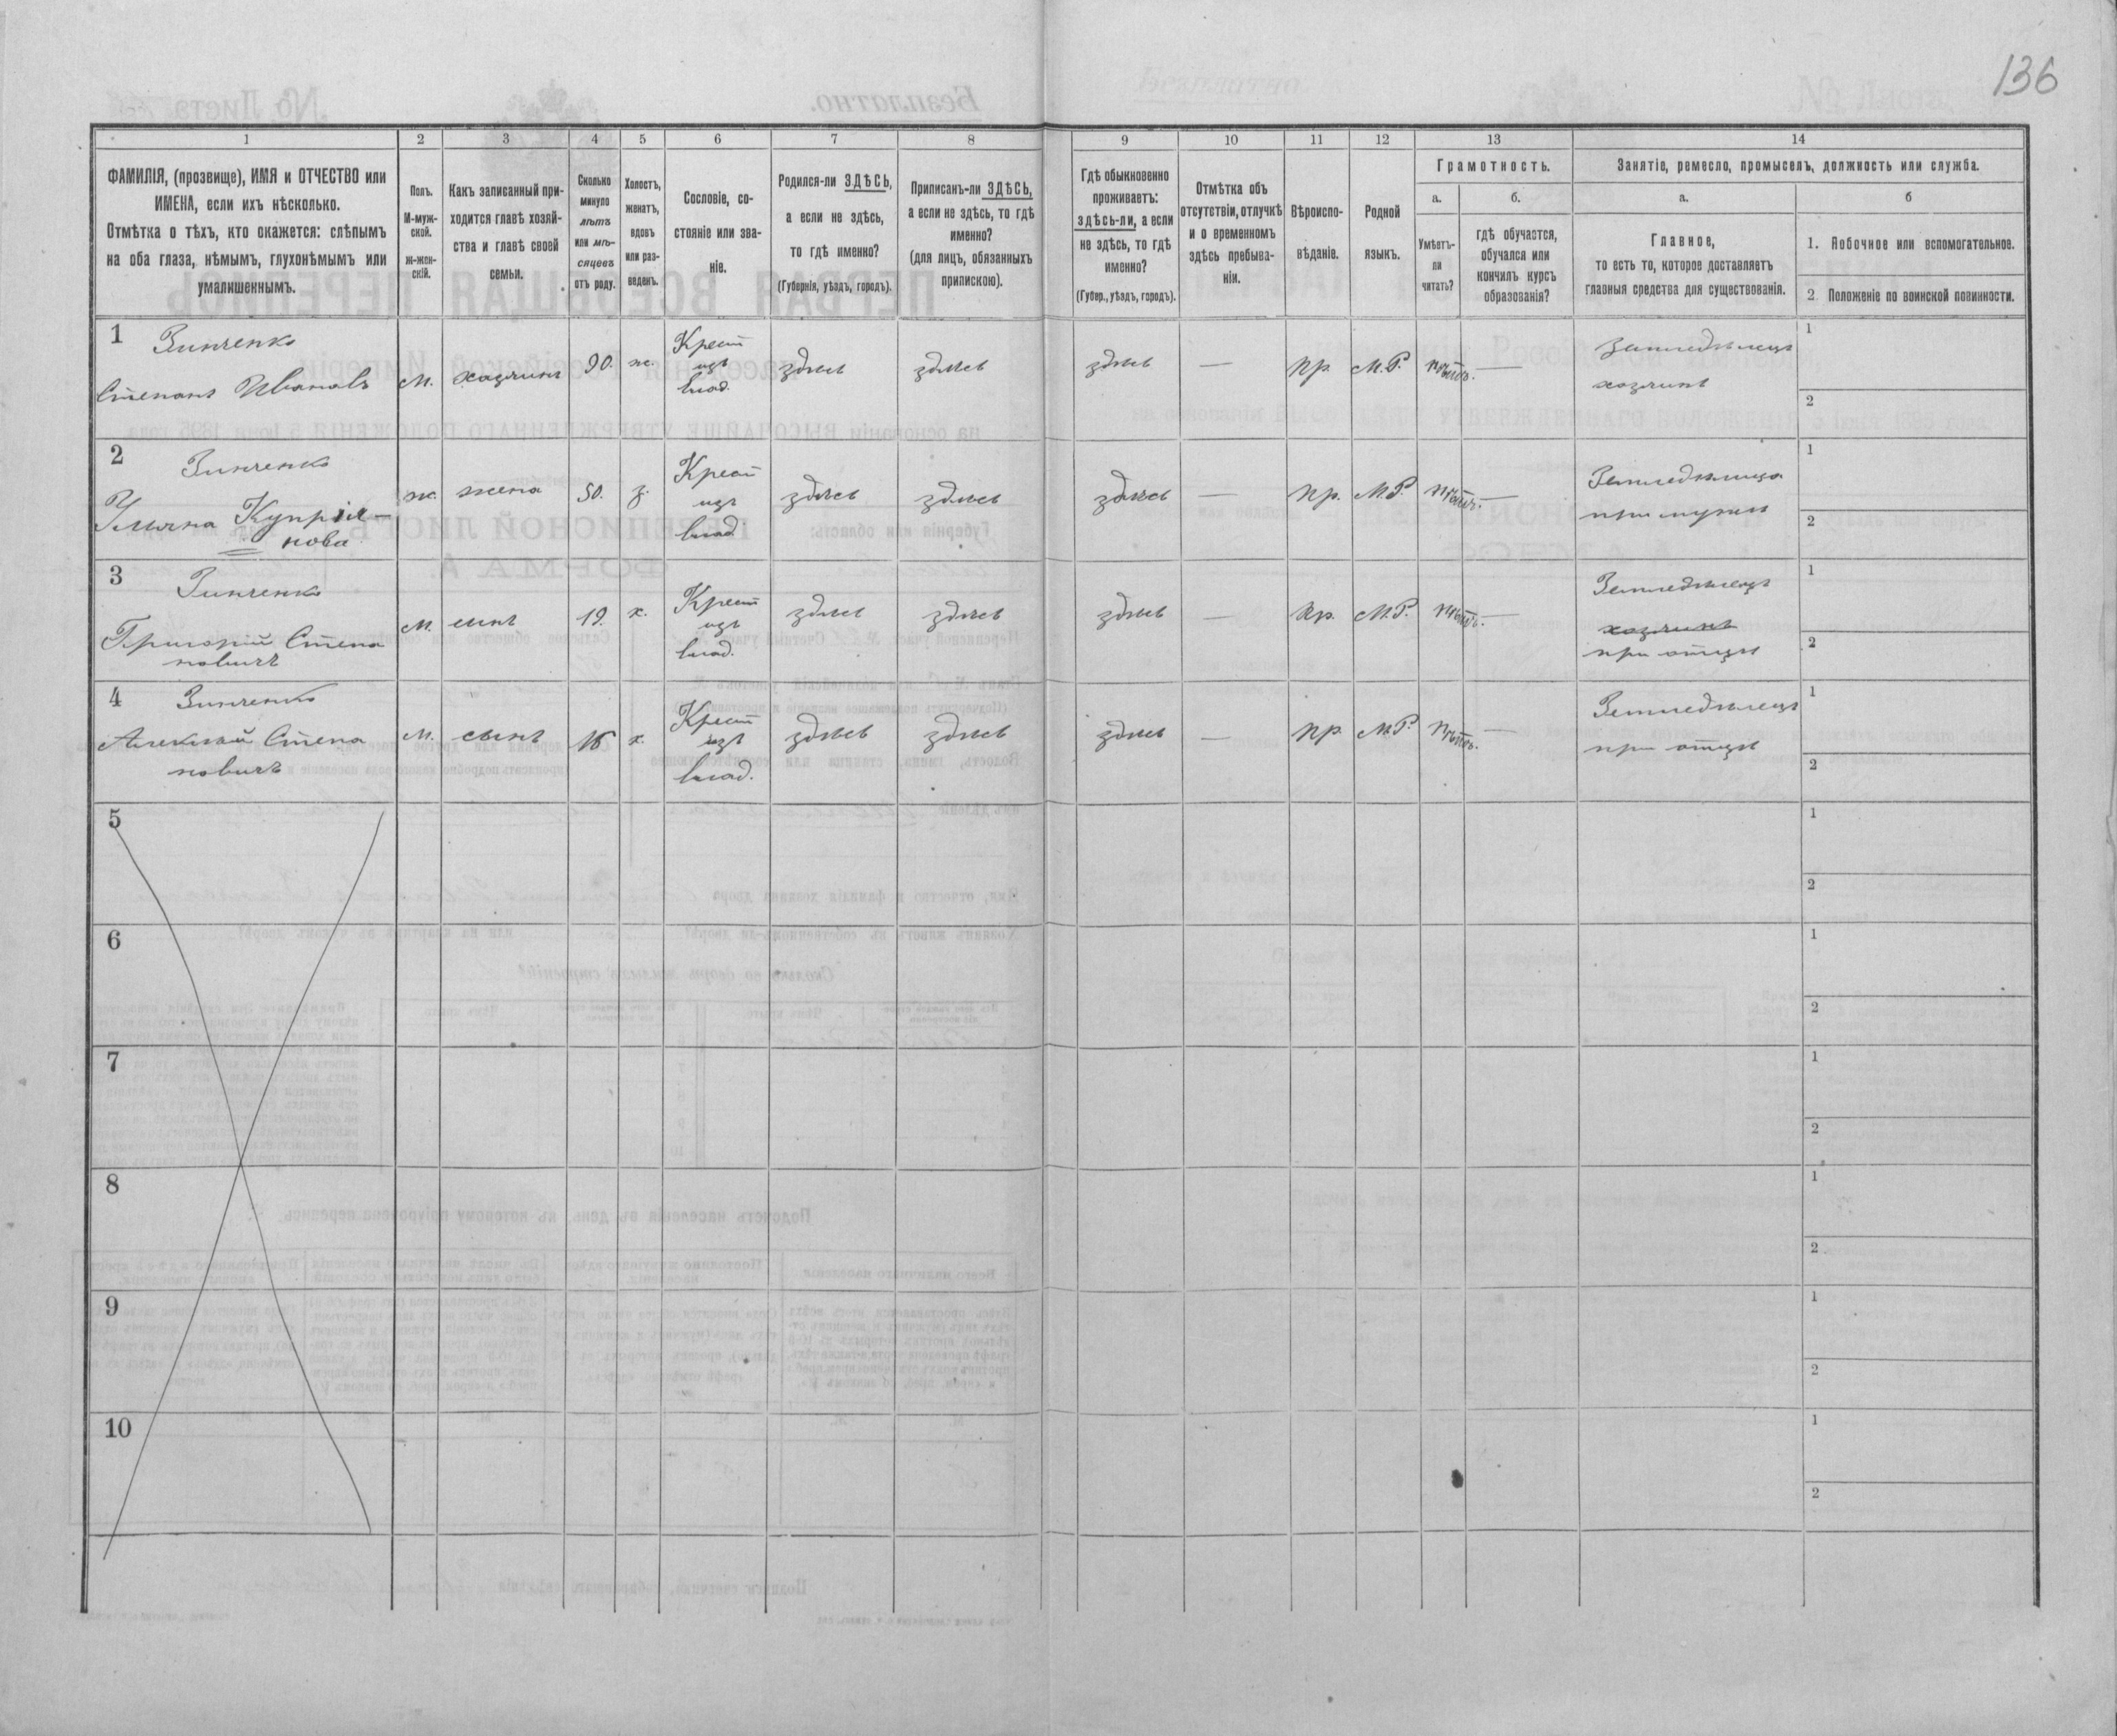 136
1
2
3
4
5
6
7
8
9
10
11
12
13
14
ФАМИЛІЯ, (прозвище), ИМЯ и ОТЧЕСТВО или
ИМЕНА, если ихъ нѣсколько.
Отмѣтка о тѣхъ, кто окажется: слѣпымъ
на оба глаза, нѣмымъ, глухонѣмымъ или
умалишеннымъ.
Полъ.
М-муж-
ской.
ж-жен-
скій.
Какъ записанный при-
ходится главѣ хозяй-
ства и главѣ своей
семьи.
Сколько
минуло
лѣтъ
или мѣ-
сяцевъ
отъ роду.
Холостъ,
женатъ,
вдовъ
или раз-
веденъ.
Сословіе, со-
стояніе или зва-
ніе.
Родился-ли ЗДѢСЬ,
а если не здѣсь,
то гдѣ именно?
(Губернія, уѣздъ, городъ).
Приписанъ-ли ЗДѢСЬ,
а если не здѣсь, то гдѣ
именно?
(для лицъ, обязанныхъ
припискою).
Гдѣ обыкновенно
проживаетъ:
здѣсь-ли, а если
не здѣсь, то гдѣ
именно?
(Губер., уѣздъ, городъ).
Отмѣтка объ
отсутствіи, отлучкѣ
и о временномъ
здѣсь пребыва-
ніи.
Вѣроиспо-
вѣданіе.
Родной
языкъ.
Грамотность.
а.
Умѣетъ-
ли
читать?
б.
гдѣ обучается,
обучался или
кончилъ курсъ
образованія?
Занятіе, ремесло, промыселъ, должность или служба.
а.
Главное,
то есть то, которое доставляетъ
главныя средства для существованія.
б
1. Побочное или вспомогательное.
2. Положеніе по воинской повинности.
1 Зинченко
Степанъ Ивановъ
м. хозяинъ 90. ж. Крест изъ влад. здѣсь здѣсь здѣсь — пр. М.Р. нѣтъ. — Земледѣлецъ
хозяинъ
1
2
2 Зинченко
Ульяна Купрія-
нова
ж. жена 50. з. Крест изъ влад. здѣсь здѣсь здѣсь — пр. М.Р. нѣтъ. — Земледѣлица
при мужѣ
1
2
3 Зинченко
Григорій Степа
новичъ
м. сынъ 19. х. Крест изъ влад. здѣсь здѣсь здѣсь — пр. М.Р. нѣтъ. — Земледѣлецъ
хозяинъ
при отцѣ
1
2
4 Зинченко
Алексѣй Степа
новичъ
м. сынъ 16 х. Крест изъ влад. здѣсь здѣсь здѣсь — пр. М.Р. нѣтъ. — Земледѣлецъ
при отцѣ
1
2
5
1
2
6
1
2
7
1
2
8
1
2
9
1
2
10
1
2